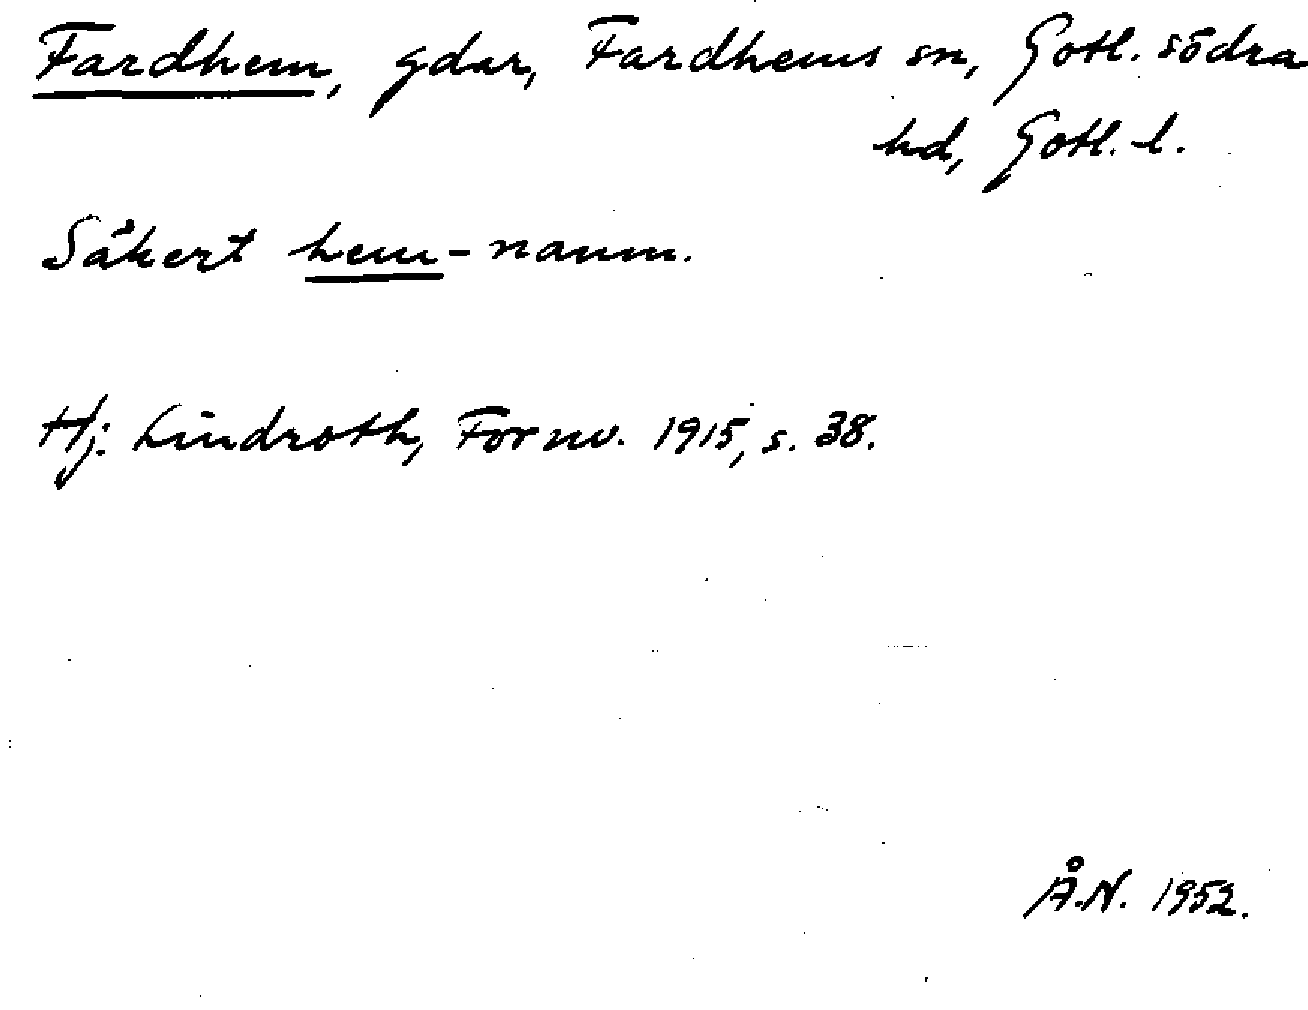 Fardhem, gdar, Fardhems sn, Gotl. södra
hd, Gotl. l.
Säkert hem-namn.
Hj. Lindroth, Fornv. 1915, s. 38.
Å.N. 1952.